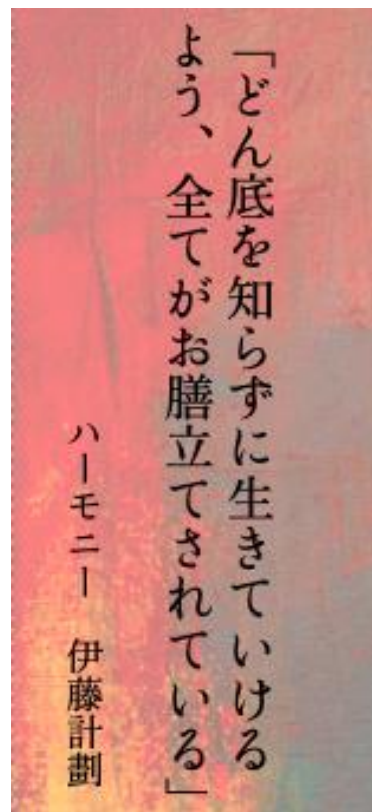 「どん底を知らずに生きていける
よう、全てがお膳立てされている」
ハーモニー　伊藤計劃